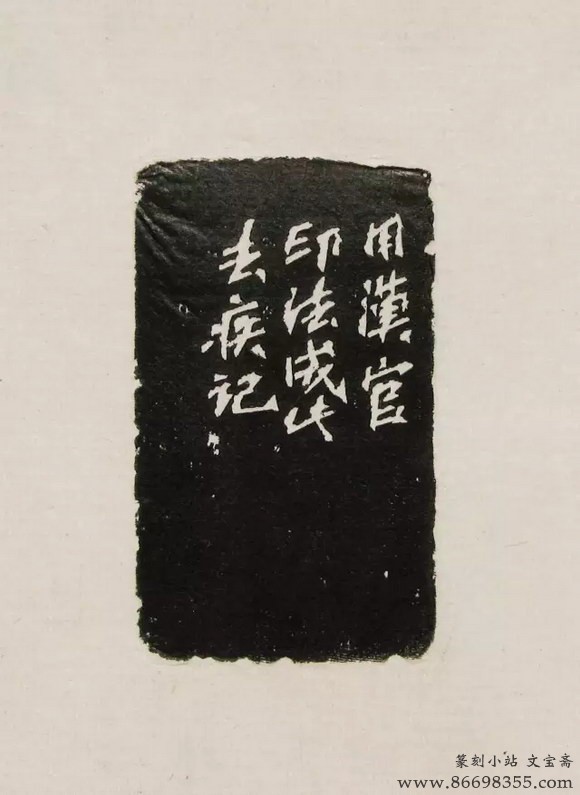 用漢官
印法成此
去疾記
篆刻小站 文宝斋
www.86698355.com